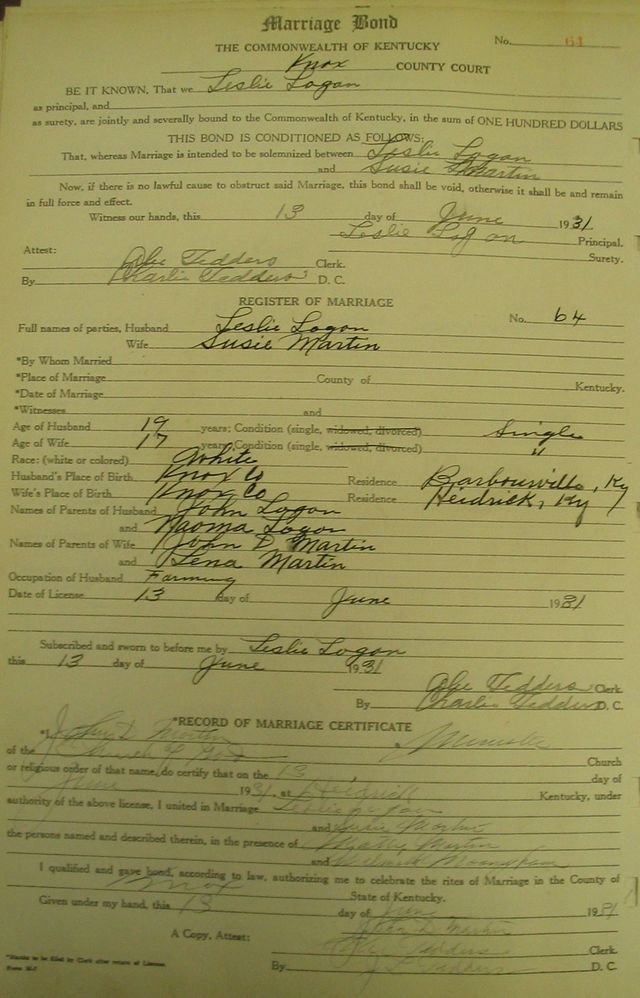 Marriage Bond
THE COMMONWEALTH OF KENTUCKY No. 64
Knox COUNTY COURT
BE IT KNOWN, That we Leslie Logan
as principal, and
as surety, are jointly and severally bound to the Commonwealth of Kentucky, in the sum of ONE HUNDRED DOLLARS
THIS BOND IS CONDITIONED AS FOLLOWS:
That, whereas Marriage is intended to be solemnized between Leslie Logan
and Susie Martin
Now, if there is no lawful cause to obstruct said Marriage, this bond shall be void, otherwise it shall be and remain
in full force and effect.
Witness our hands, this 13 day of June 1931
Leslie Logan Principal.
Attest: Surety.
Abe Tedders Clerk.
By Charlie Tedders D. C.
REGISTER OF MARRIAGE
Full names of parties, Husband Leslie Logan No. 64
Wife Susie Martin
*By Whom Married
*Place of Marriage County of Kentucky.
*Date of Marriage
*Witnesses and
Age of Husband 19 years; Condition (single, widowed, divorced) Single
Age of Wife 17 years; Condition (single, widowed, divorced) "
Race: (white or colored) White
Husband's Place of Birth Knox Co Residence Barbourville, Ky
Wife's Place of Birth Knox Co Residence Heidrick, Ky
Names of Parents of Husband John Logan
and Naoma Logan
Names of Parents of Wife John D Martin
and Lena Martin
Occupation of Husband Farming
Date of License 13 day of June 1931
Subscribed and sworn to before me by Leslie Logan
this 13 day of June 1931
Abe Tedders Clerk
By Charlie Tedders D. C.
*RECORD OF MARRIAGE CERTIFICATE
*I, John D Martin Minister
of the Church of God Church
or religious order of that name, do certify that on the 13 day of
June 1931, at Heidrick Kentucky, under
authority of the above license, I united in Marriage Leslie Logan
and Susie Martin
the persons named and described therein, in the presence of Martin
and
I qualified and gave bond, according to law, authorizing me to celebrate the rites of Marriage in the County of
Knox State of Kentucky.
Given under my hand, this 13 day of June 1931
John D Martin
A Copy, Attest: Abe Tedders Clerk.
By Tedders D. C.
*Blanks to be filled by Clerk after return of License.